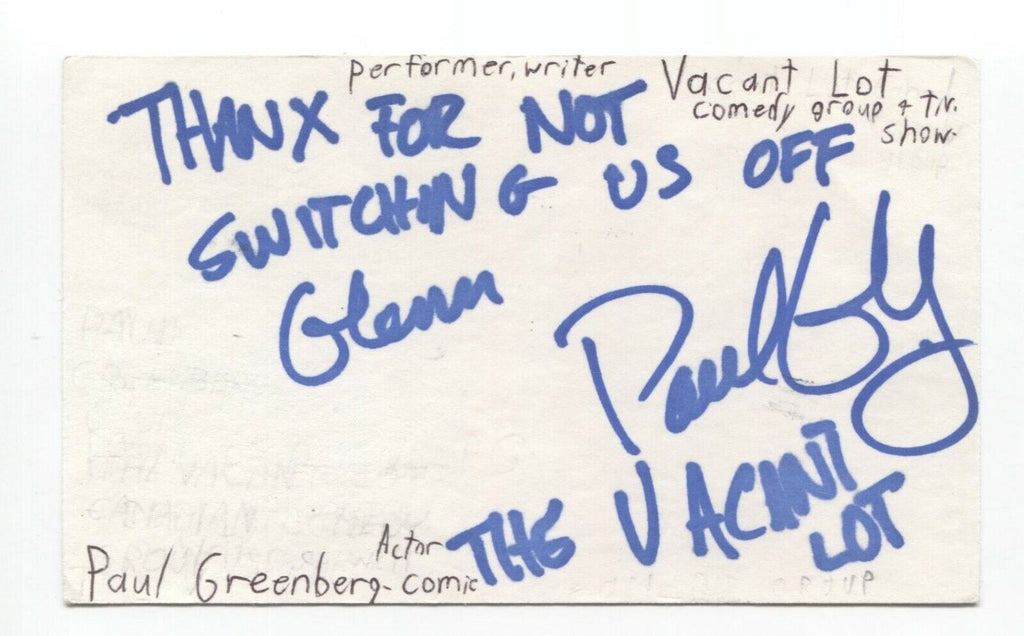 performer, writer
Vacant Lot
comedy group + T.V.
show
THANX FOR NOT
SWITCHING US OFF
Glenn
Paul
THE VACANT
LOT
Actor
Paul Greenberg - comic